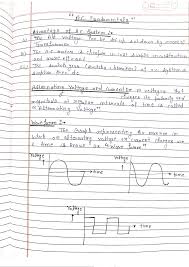 "AC Fundamentals"
Advantages of AC System :-
(i) The AC voltage can be by means of
Transformer
(ii) The AC motors is simple in construction
and more efficient
(iii) The switchgear (switches ) of AC System is
simpler than DC
Alternating Voltage and Current :- A voltage that
changes its polarity and
magnitude at regular intervals of time is called
a "alternating voltage"
Wave form :-
The Graph representing the manner in
which an alternating voltage or current changes with
time is known as "Wave form"
Voltage
Voltage
time
time
Voltage
time